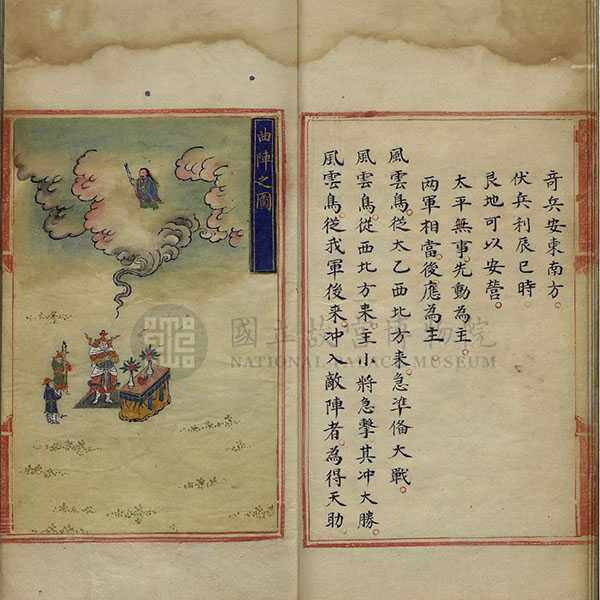 奇兵安東南方。
伏兵利辰巳時。
艮地可以安營。
太平無事。先動為主。
两軍相當。後應為主
風雲鳥。從太乙西北方来。急準俻大戰。
風雲鳥從西北方来。主小將急擊其冲大勝。
風雲鳥從我軍後来冲入敵陣者。為得天助
曲陣之圖
國立故宮博物院
NATIONAL PALACE MUSEUM